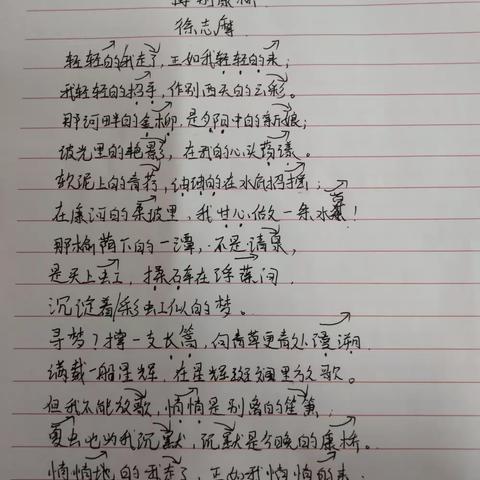 再别康桥
徐志摩
轻轻的我走了,正如我轻轻的来;
我轻轻的招手,作别西天的云彩。
那河畔的金柳,是夕阳中的新娘;
波光里的艳影,在我的心头荡漾。
软泥上的青荇,油油的在水底招摇;
在康河的柔波里,我甘心做一条水草!
那榆荫下的一潭,不是清泉,
是天上虹,揉碎在浮藻间,
沉淀着彩虹似的梦。
寻梦?撑一支长篙,向青草更青处漫溯,
满载一船星辉,在星辉斑斓里放歌。
但我不能放歌,悄悄是别离的笙箫;
夏虫也为我沉默,沉默是今晚的康桥。
悄悄地的我走了,正如我悄悄的来